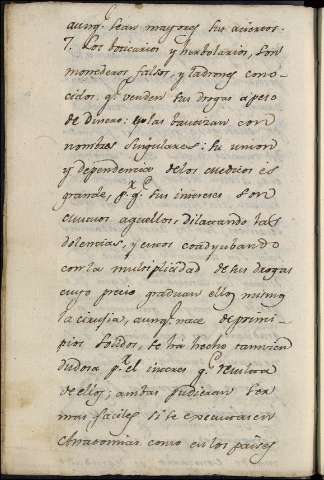 aunq.e sean mayores sus aciertos.
7. Los boticarios y herbolarios, son
monederos falsos, y ladrones cono-
cidos q.e venden sus drogas a peso
de Dinero: las bautizan con
nombres singulares: su union
y dependencia de los medicos es
grande, p.r q.e sus intereses son
mutuos aquellos, dilatando las
dolencias, y estos coadyubando
con la multiplicidad de sus drogas
cuyo precio graduan ellos mismos
la cirujia, aunq.e nace de princi-
pios solidos, se ha hecho tan
dudosa p.r el interes q.e resulta
de ellos; ambas pudieran ser
mas faciles si se executasen
Anatomias como en los paises